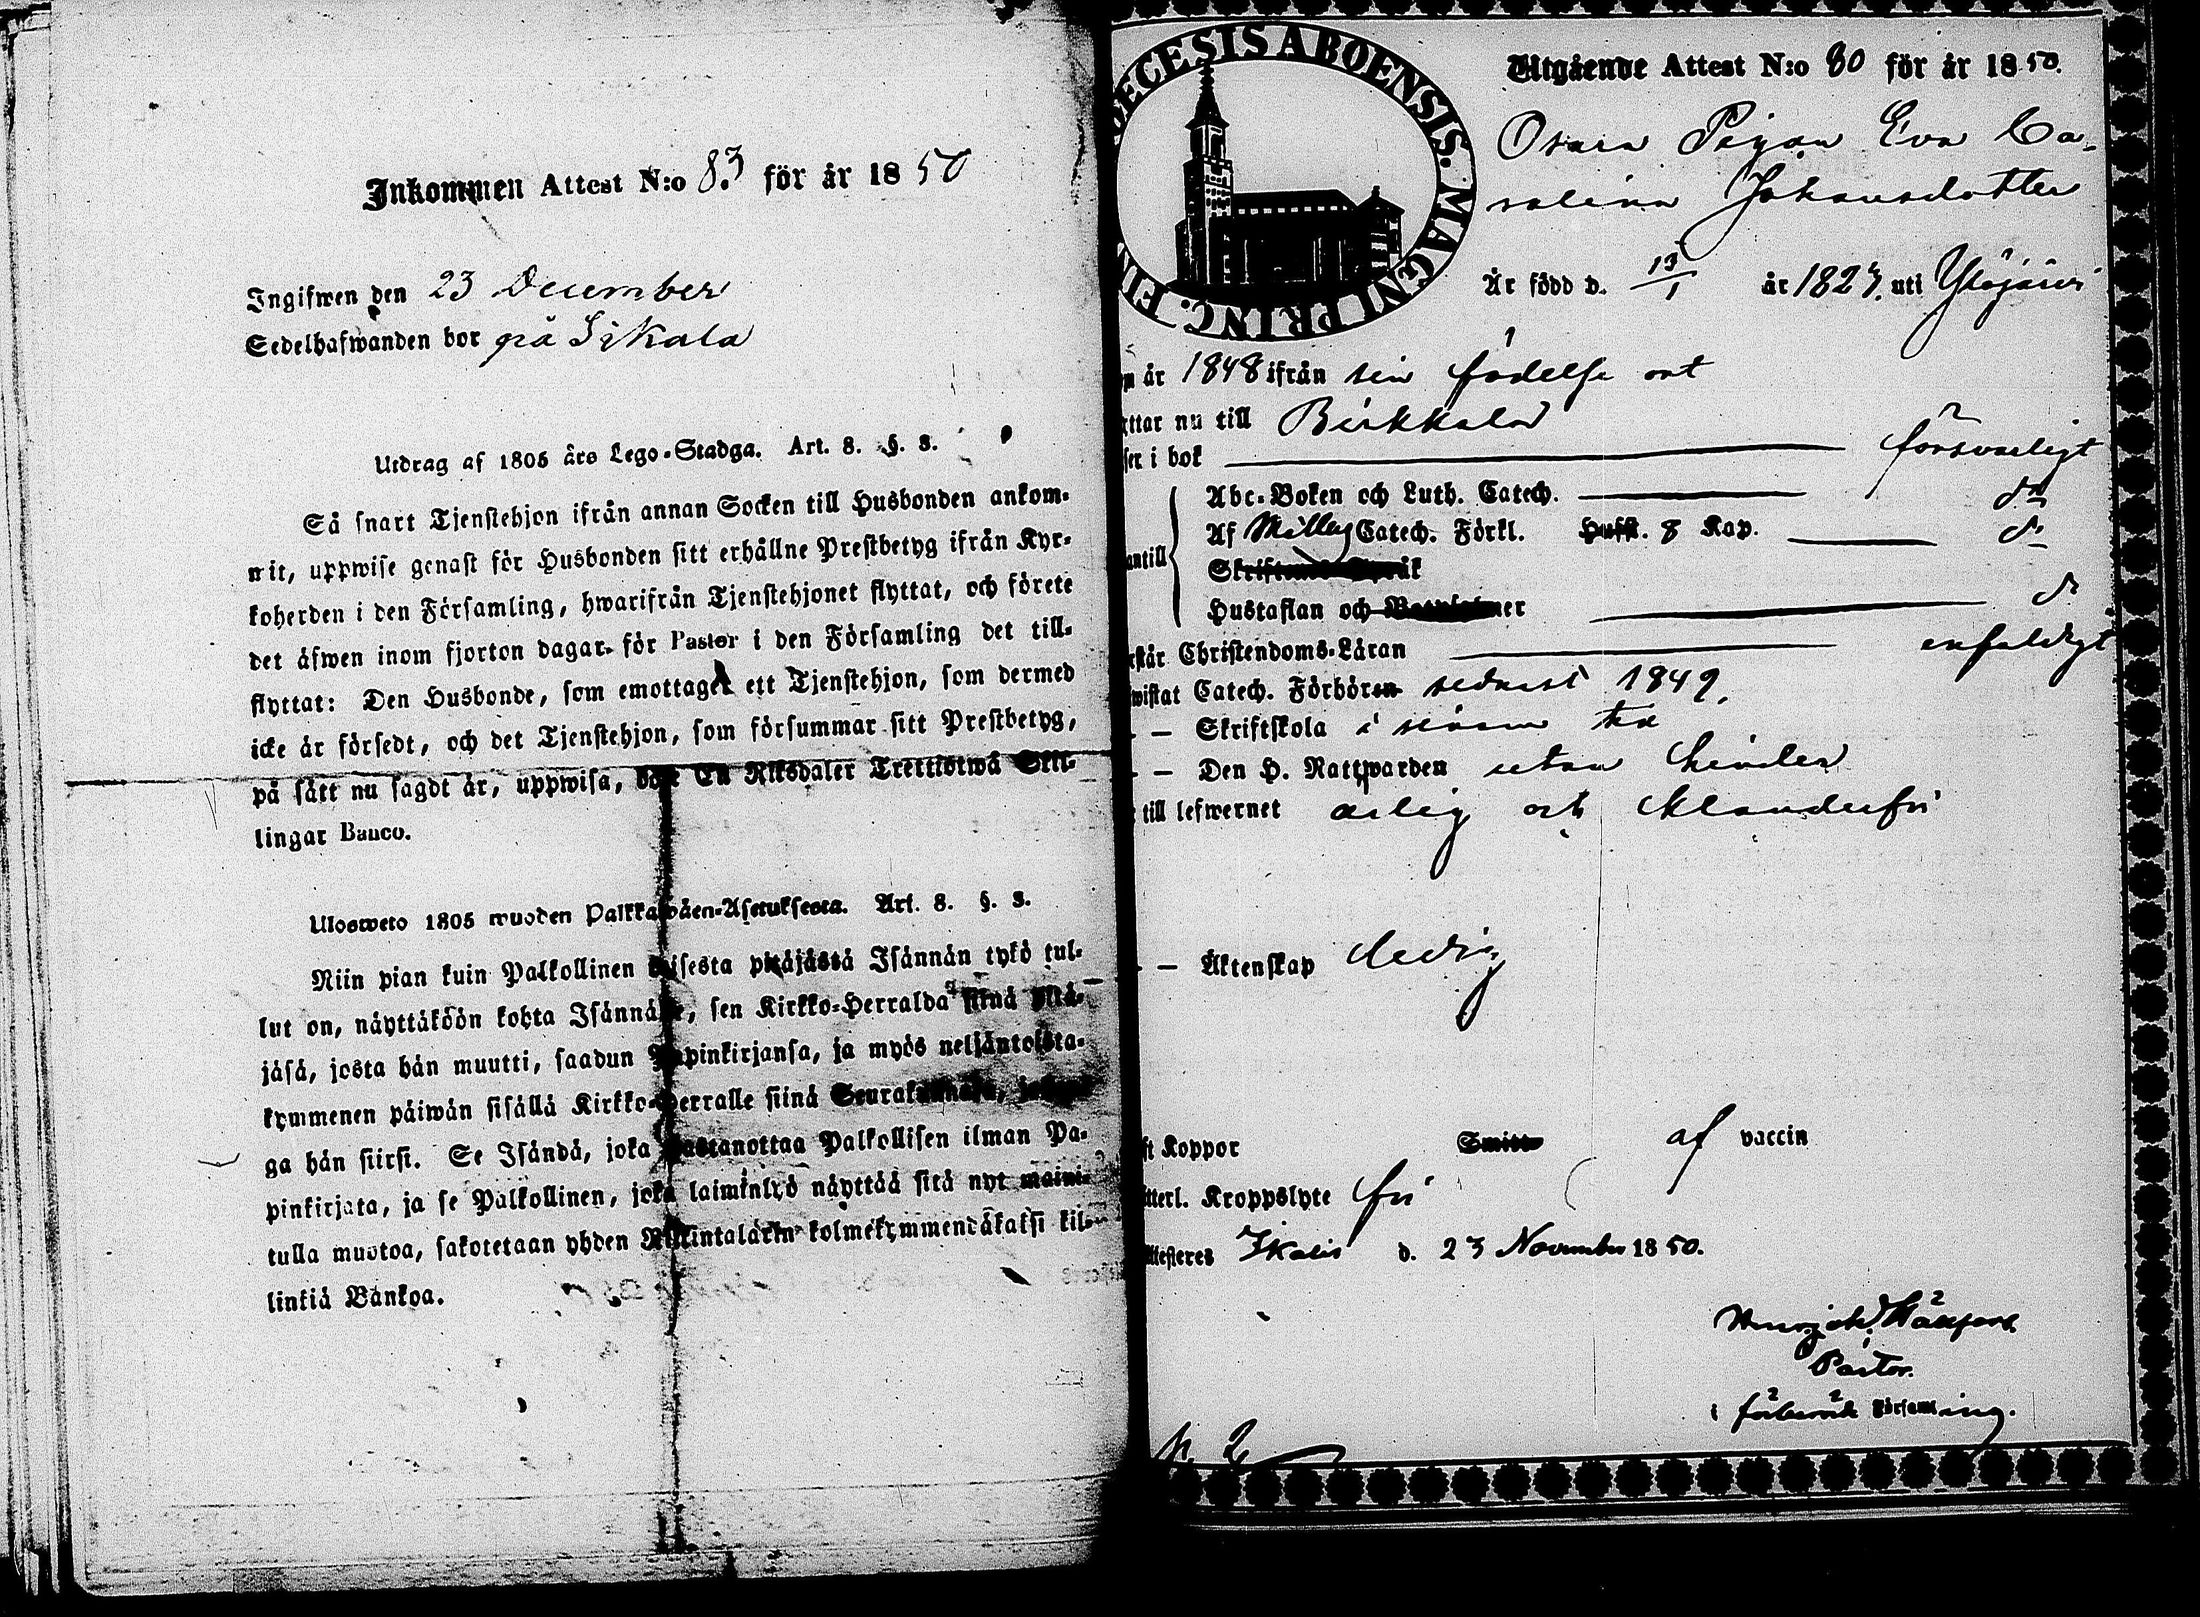 Inkommen Attest N:o 83 för år 1850
Ingifwen den 23 December
Sedelhafwanden bor på Sikala
Utdrag af 1805 års Lego-Stadga. Art. 8. §. 8.
Så snart Tjenstehjon ifrån annan Socken till Husbonden ankom-
mit, uppwise genast för Husbonden sitt erhållne Prestbetyg ifrån Kyr-
koherden i den Församling, hwarifrån Tjenstehjonet flyttat, och förete
det äfwen inom fjorton dagar för Pastor i den Församling det till-
flyttat: Den Husbonde, som emottager ett Tjenstehjon, som dermed
icke är försedt, och det Tjenstehjon, som försummar sitt Prestbetyg,
på sätt nu sagdt är, uppwisa, böte En Riksdaler Trettiotwå Skil-
lingar Banco.
Ulosweto 1805 wuoden Palkkawäen-Asetuksesta. Art. 8. §. 8.
Niin pian kuin Palkollinen toisesta pitäjästä Isännän tykö tul-
lut on, näyttäköön kohta Isännälle, sen Kirkko-Herralda siinä Pitä-
jäsä, josta hän muutti, saadun Papinkirjansa, ja myös neljäntoista-
kymmenen päiwän sisällä Kirkko-Herralle siinä Seurakunnasa, johon-
ga hän siirsi. Se Isändä, joka wastanottaa Palkollisen ilman Pa-
pinkirjata, ja se Palkollinen, joka laiminlyö näyttää sitä nyt maini-
tulla muotoa, sakotetaan yhden Riikintalarin kolmekymmendäkaksi kil-
linkiä Bankoa.
DIOECESIS ABOENSIS. MAGNI PRINC. FIN
Utgående Attest N:o 80 för år 1850.
Pigan Eva Ca-
rolina Johansdotter
Är född d. 13/1 år 1827. uti Ylöjärvi
en år 1848 ifrån sin födelse ort
yttar nu till Birkkala
ser i bok försvarligt
Abc-Boken och Luth. Catech. do
Af Catech. Förkl. Hufst. 8 Kap. do
antill Skriftenes Språk
Hustaflan och do
rstår Christendoms-Läran enfaldigt
wistat Catech. Förhören sednast 1849.
— — Skriftskola i sinom tid
— — Den H. Nattwarden utan hinder
till lefwernet ärlig och klanderfri
— — Äktenskap Ledig
ft Koppor Smitto af vaccin
tterl. Kroppslyte fri
Attesteres Ikalis d. 23 November 1850.
Pastor.
i Församling.